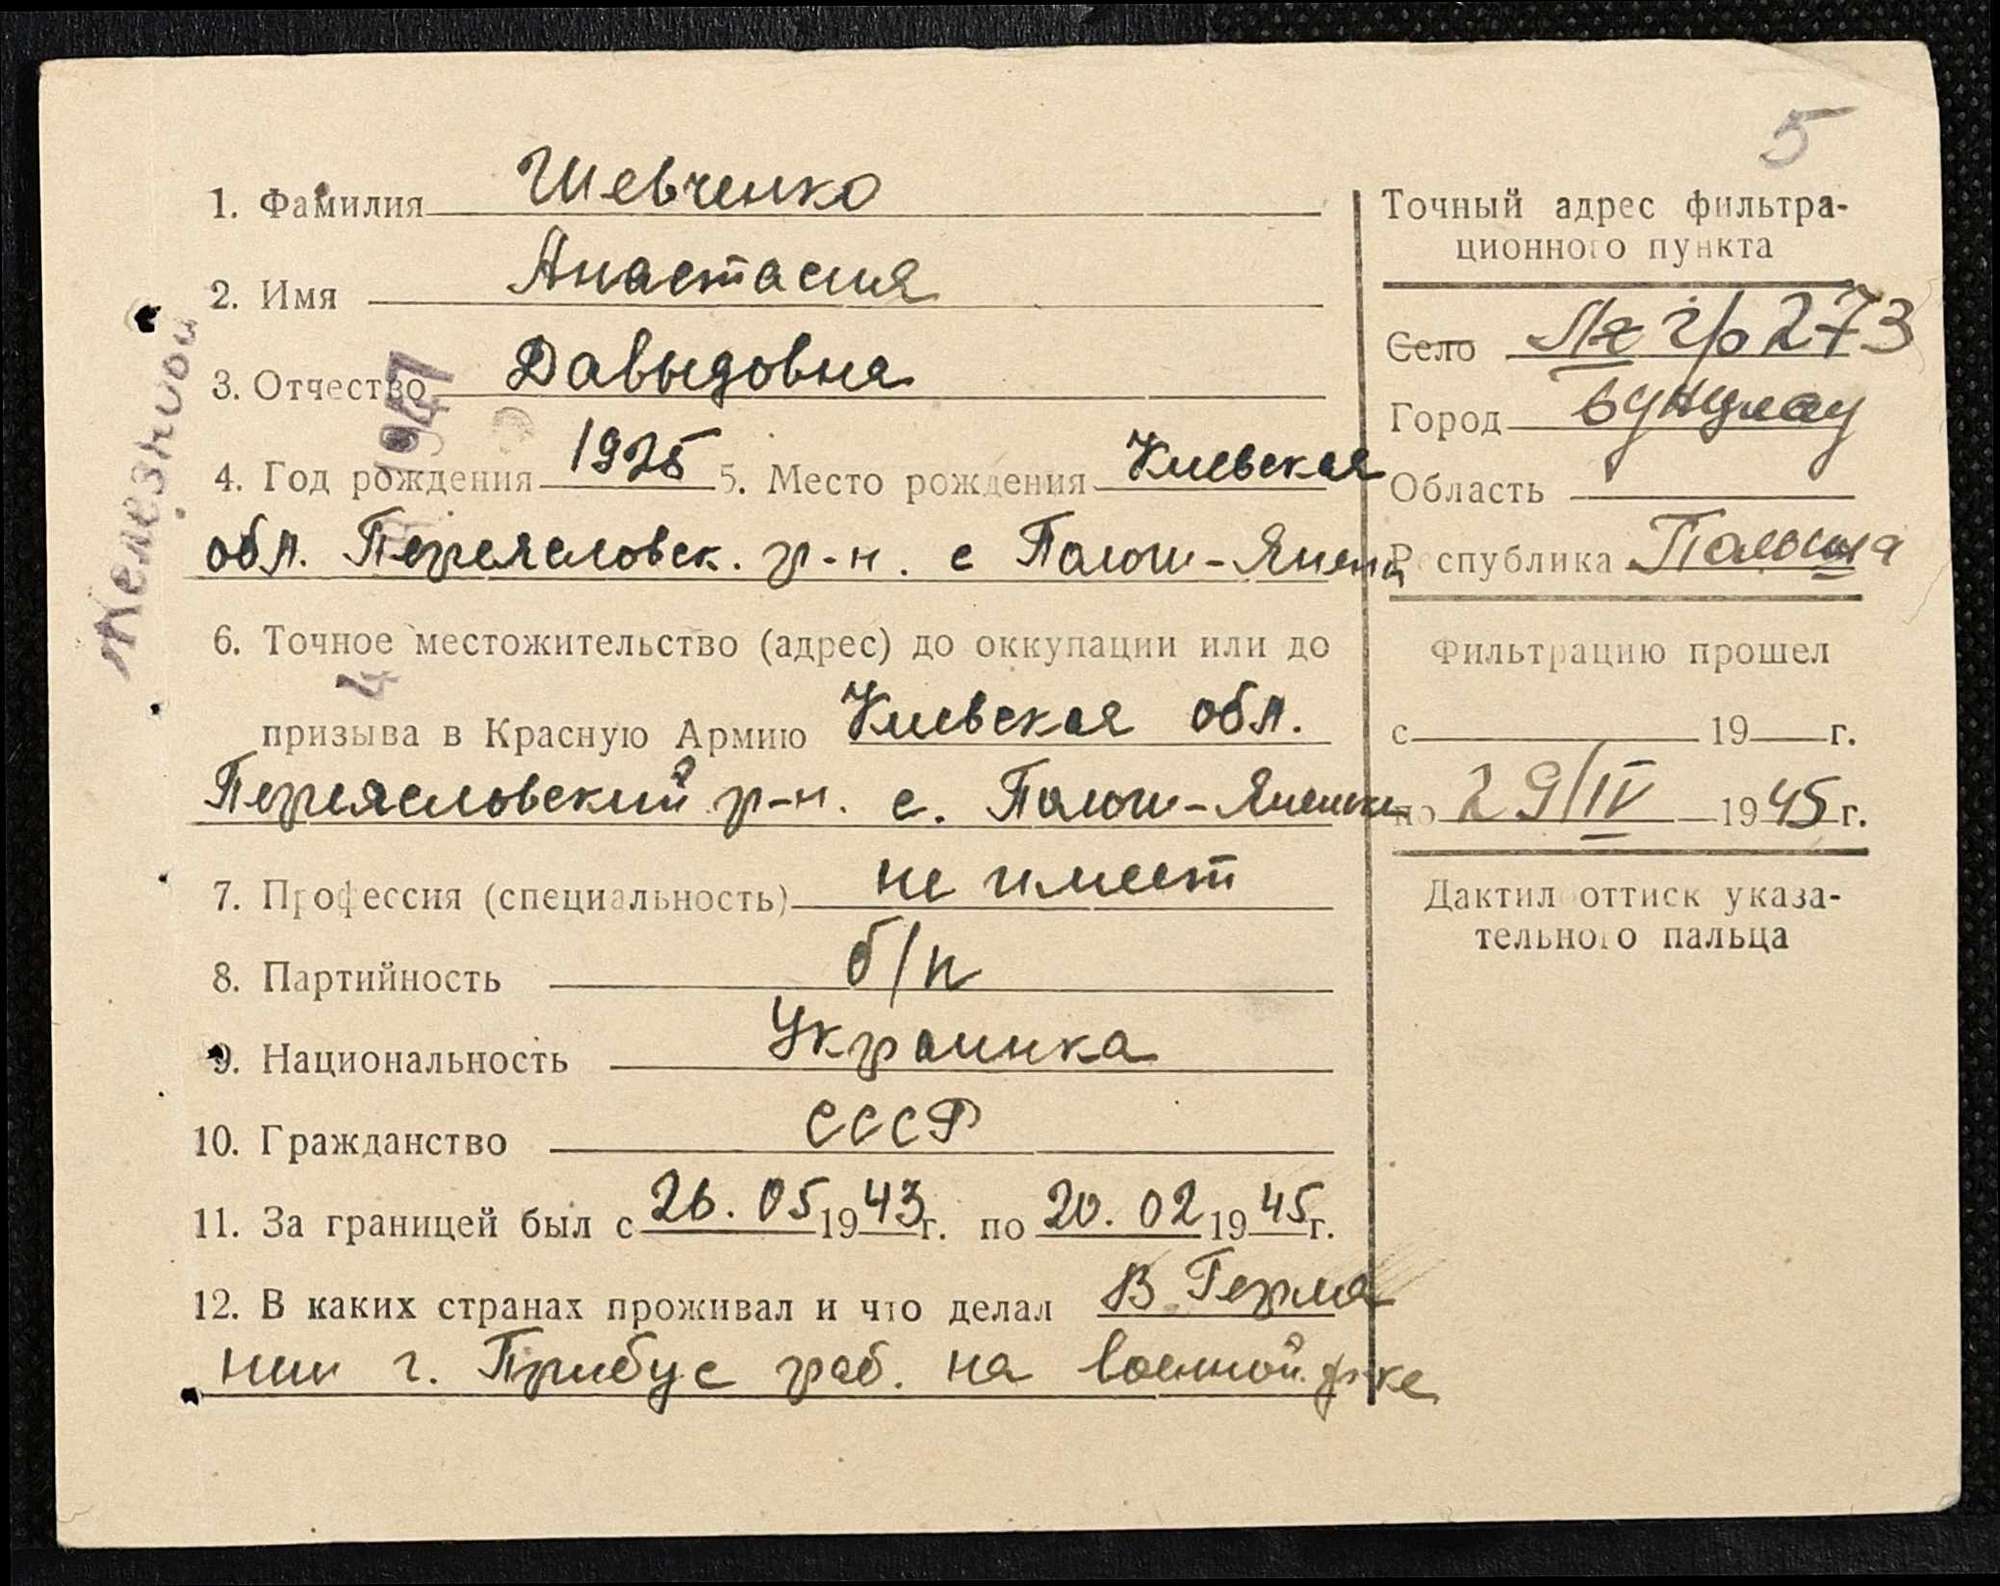 5
1. Фамилия Шевченко
2. Имя Анастасия
3. Отчество Давыдовна
4. Год рождения 1925 5. Место рождения Киевская
обл. Переясловск. р-н. с
6. Точное местожительство (адрес) до оккупации или до
призыва в Красную Армию Киевская обл.
Переясловский р-н. с.
7. Профессия (специальность) не имеет
8. Партийность б/п
9. Национальность Украинка
10. Гражданство СССР
11. За границей был с 26.05 1943 г. по 20.02 1945 г.
12. В каких странах проживал и что делал В Герма
нии г. Прибус раб. на военной ф-ке
Точный адрес фильтра-
ционного пункта
Село 273
Город Бунцлау
Область
Республика Польша
Фильтрацию прошел
с 19 г.
по 29/IV 1945 г.
Дактил оттиск указа-
тельного пальца
1947